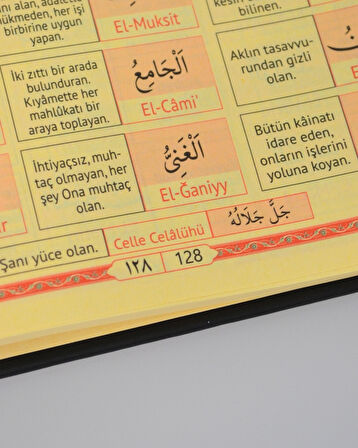 hükmeden, her işi
birbirine uygun
yapan.
El-Muksit
bilinen.
İki zıttı bir arada
bulunduran.
Kıyâmette her
mahlûkatı bir
araya toplayan.
اَلْجَامِعُ
El-Câmi'
Aklın tasavvu-
rundan gizli
olan.
İhtiyaçsız, muh-
taç olmayan, her
şey Ona muhtaç
olan.
اَلْغَنِىُّ
El-Ğaniyy
Bütün kâinatı
idare eden,
onların işlerini
yoluna koyan.
Şanı yüce olan.
Celle Celâlühü
جَلَّ جَلَالُهُ
١٢٨ 128